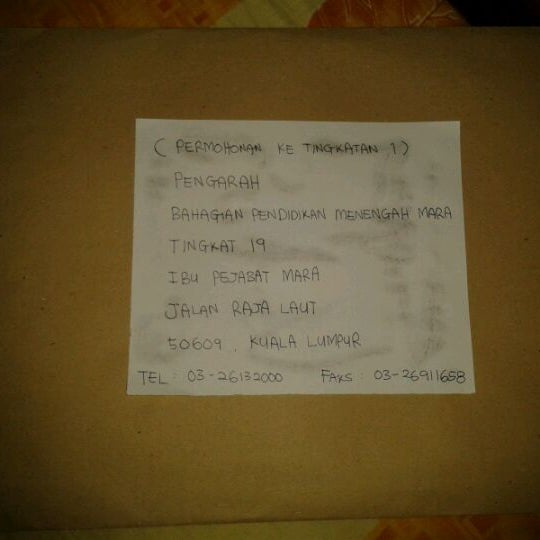 ( PERMOHONAN KE TINGKATAN 1 )
PENGARAH
BAHAGIAN PENDIDIKAN MENENGAH MARA
TINGKAT 19
IBU PEJABAT MARA
JALAN RAJA LAUT
50609 , KUALA LUMPUR
TEL : 03-26132000 FAKS : 03-26911658